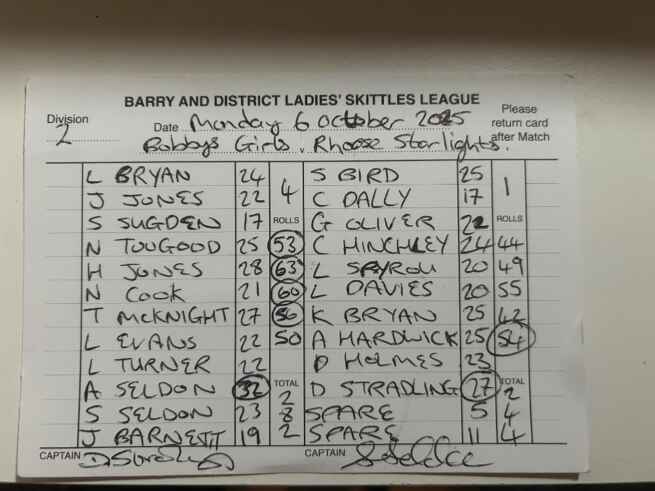 BARRY AND DISTRICT LADIES' SKITTLES LEAGUE
Division 2
Date Monday 6 October 2025
Please return card after Match
Bobbys Girls . Rhoose Starlights.
L BRYAN 24 4 S BIRD 25 1
J JONES 22 C DALLY 17
S SUGDEN 17 ROLLS G OLIVER 22 ROLLS
N TOOGOOD 25 53 C HINCHLEY 24 44
H JONES 28 63 L SPYROU 20 49
N COOK 21 60 L DAVIES 20 55
T McKNIGHT 27 56 K BRYAN 25 42
L EVANS 22 50 A HARDWICK 25 54
L TURNER 22 D HOLMES 23
A SELDON 32 TOTAL 2 D STRADLING 27 TOTAL 2
S SELDON 23 8 SPARE 5 4
J BARNETT 19 2 SPARE 11 4
CAPTAIN CAPTAIN